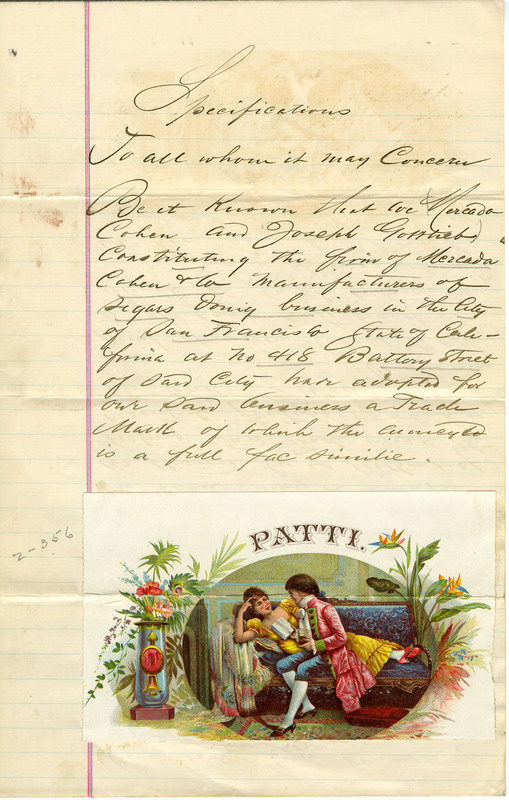 Specifications
To all whom it may Concern
Be it Known that we Mercado
Cohen and Joseph Gottlieb
Constituting the firm of Mercada
Cohen & Co Manufacturers of
Segars doing business in the City
of San Francisco State of Cali-
fornia at No 418 Battery Street
of said City have adopted for
our said business a Trade
Mark of which the annexed
is a full fac similie.
2-356
PATTI.